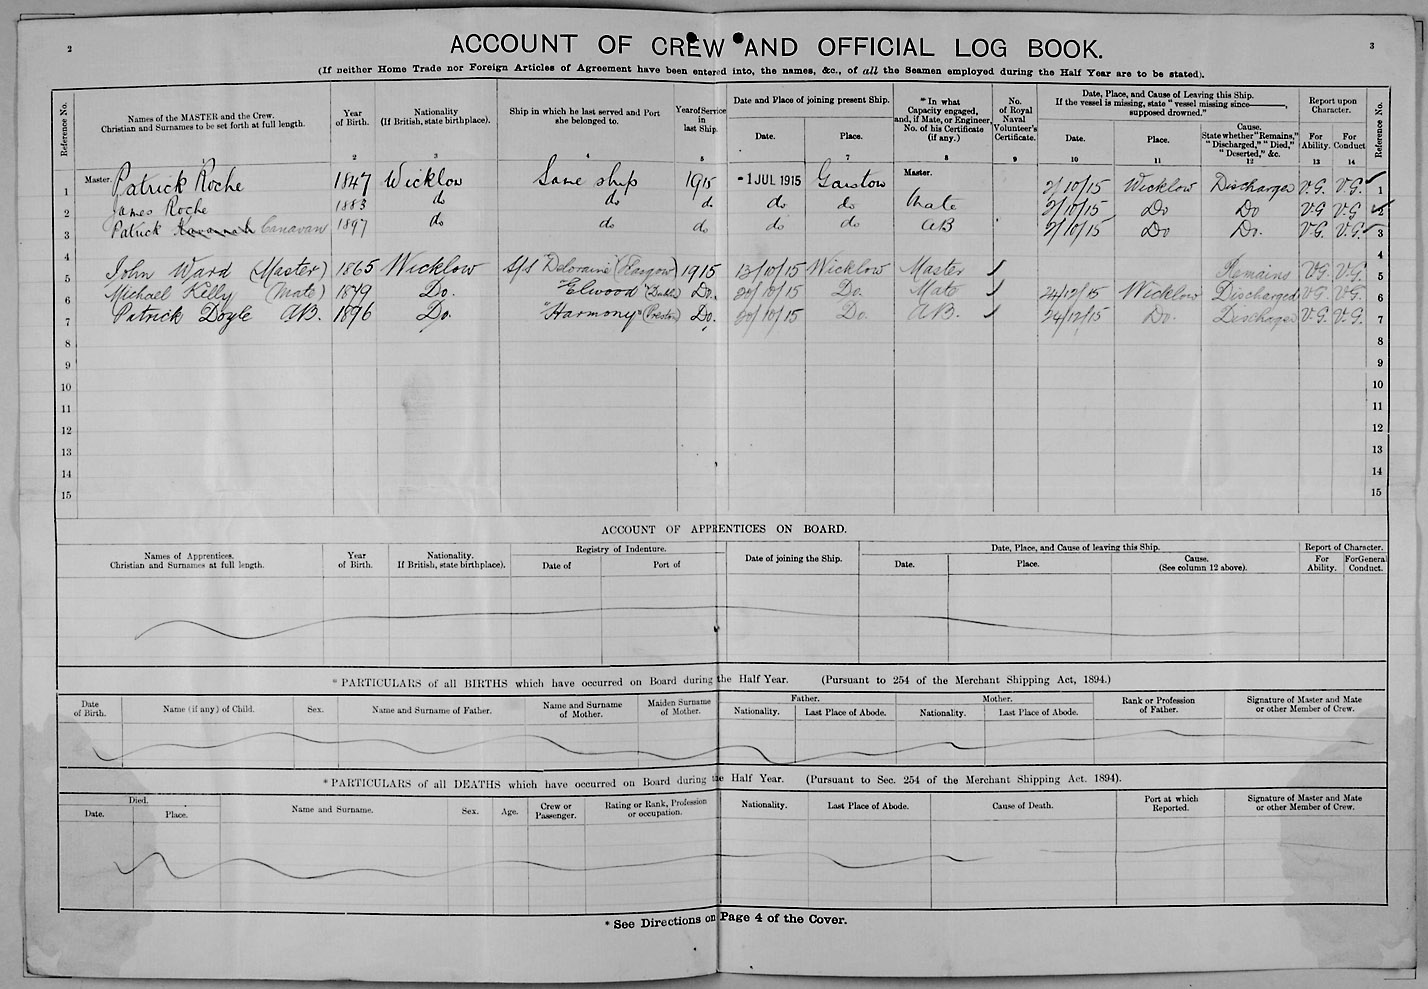 2
3
ACCOUNT OF CREW AND OFFICIAL LOG BOOK.
(If neither Home Trade nor Foreign Articles of Agreement have been entered into, the names, &c., of all the Seamen employed during the Half Year are to be stated).
Reference No.
Names of the MASTER and the Crew.
Christian and Surnames to be set forth at full length.
Year of Birth. 2
Nationality (If British, state birthplace). 3
Ship in which he last served and Port she belonged to. 4
Year of Service in last Ship. 5
Date and Place of joining present Ship.
Date.
Place. 7
*In what Capacity engaged, and, if Mate, or Engineer, No. of his Certificate (if any.) 8
No. of Royal Naval Volunteer's Certificate. 9
Date, Place, and Cause of Leaving this Ship.
If the vessel is missing, state "vessel missing since ——, supposed drowned."
Date. 10
Place. 11
Cause. State whether "Remains," "Discharged," "Died," "Deserted," &c. 12
Report upon Character.
For Ability. 13
For Conduct 14
Reference No.
1 Master. Patrick Roche 1847 Wicklow Same ship 1915 -1 JUL 1915 Garston Master. 2/10/15 Wicklow Discharged V.G. V.G. 1
2 James Roche 1883 do do do do do Mate 2/10/15 Do Do V.G V.G 2
3 Patrick Kavanah Canavan 1897 do do do do do AB 2/10/15 Do Do. V.G. V.G. 3
4 4
5 John Ward (Master) 1865 Wicklow S/S Deloraine (Glasgow) 1915 13/10/15 Wicklow Master Remains V.G. V.G. 5
6 Michael Kelly (Mate) 1879 Do. "Elwood" (Dublin) Do. 20/10/15 Do. Mate 24/12/15 Wicklow Discharged V.G. V.G. 6
7 Patrick Doyle A.B. 1896 Do. "Harmony" (Preston) Do. 20/10/15 Do. A.B. 24/12/15 Do. Discharged V.G. V.G. 7
8 8
9 9
10 10
11 11
12 12
13 13
14 14
15 15
ACCOUNT OF APPRENTICES ON BOARD.
Names of Apprentices.
Christian and Surnames at full length.
Year of Birth.
Nationality.
If British, state birthplace).
Registry of Indenture.
Date of
Port of
Date of joining the Ship.
Date, Place, and Cause of leaving this Ship.
Date.
Place.
Cause.
(See column 12 above).
Report of Character.
For Ability.
For General Conduct.
* PARTICULARS of all BIRTHS which have occurred on Board during the Half Year. (Pursuant to 254 of the Merchant Shipping Act, 1894.)
Date of Birth.
Name (if any) of Child.
Sex.
Name and Surname of Father.
Name and Surname of Mother.
Maiden Surname of Mother.
Father.
Nationality.
Last Place of Abode.
Mother.
Nationality.
Last Place of Abode.
Rank or Profession of Father.
Signature of Master and Mate or other Member of Crew.
*PARTICULARS of all DEATHS which have occurred on Board during the Half Year. (Pursuant to Sec. 254 of the Merchant Shipping Act. 1894).
Died.
Date.
Place.
Name and Surname.
Sex.
Age.
Crew or Passenger.
Rating or Rank, Profession or occupation.
Nationality.
Last Place of Abode.
Cause of Death.
Port at which Reported.
Signature of Master and Mate or other Member of Crew.
* See Directions on Page 4 of the Cover.